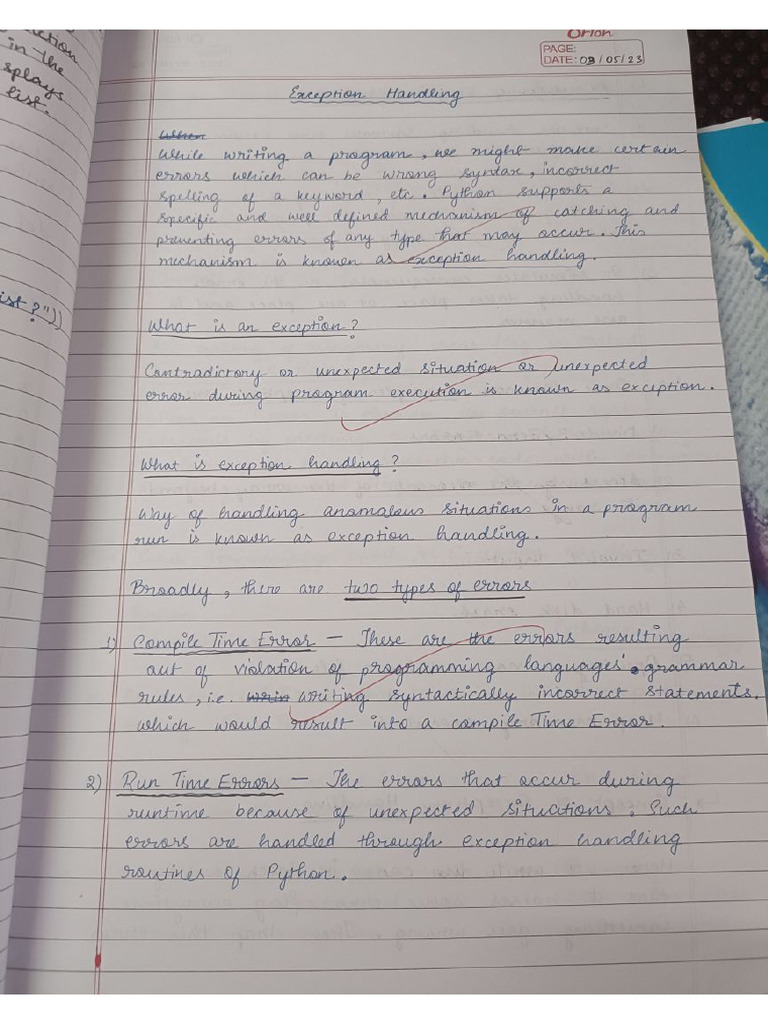 nction
in the
splays
list.
ist?"))
Orion
PAGE:
DATE: 03/05/23
Exception Handling
When
While writing a program, we might make certain
errors which can be wrong syntax, incorrect
spelling of a keyword, etc. Python supports a
specific and well defined mechanism of catching and
preventing errors of any type that may occur. This
mechanism is known as exception handling.
What is an exception?
Contradictory or unexpected situation or unexpected
error during program execution is known as exception.
What is exception handling?
Way of handling anomalous situations in a program
run is known as exception handling.
Broadly, there are two types of errors
1) Compile Time Error — These are the errors resulting
out of violation of programming languages' grammar
rules, i.e. writing syntactically incorrect statements.
which would result into a compile Time Error.
2) Run Time Errors — The errors that occur during
runtime because of unexpected situations. Such
errors are handled through exception handling
routines of Python.